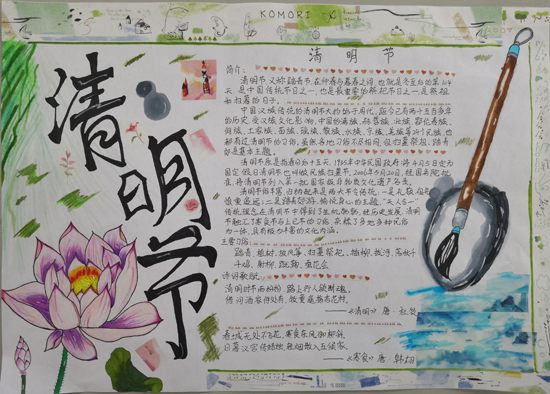 KOMORI
清明节
清明节
简介:
清明节又称踏青节,在仲春与暮春之间,也就是冬至后的第104
天,是中国传统节日之一,也是最重要的祭祀节日之一,是祭祖
和扫墓的日子。
中国汉族传统的清明节大约始于周代,距今已有两千五百多年
的历史,受汉族文化影响,中国的满族、赫哲族、壮族、鄂伦春族、
侗族、土家族、苗族、瑶族、黎族、水族、京族、羌族等24个民族,也
都有过清明节的习俗。虽然各地习俗不尽相同,但扫墓祭祖、踏青
郊游是基本主题。
清明节原是指春分后十五天,1935年中华民国政府将4月5日定为
国定假日清明节,也叫做民族扫墓节。2006年5月20日,经国务院批
准,将清明节列入第一批国家级非物质文化遗产名录。
慎重追远;二是踏青郊游、愉悦身心的主题,"天人合一"
传统理念在清明节中得到了生动
主要习俗:
踏青、植树、放风筝、扫墓祭祖、插柳、拔河、荡秋千
斗鸡、射柳、蹴鞠、蚕花会
诗词歌赋:
清明时节雨纷纷,路上行人欲断魂。
借问酒家何处有,牧童遥指杏花村。
——《清明》唐·杜牧
春城无处不飞花,寒食东风御柳斜。
日暮汉宫传蜡烛,轻烟散入五侯家。
——《寒食》唐·韩翃